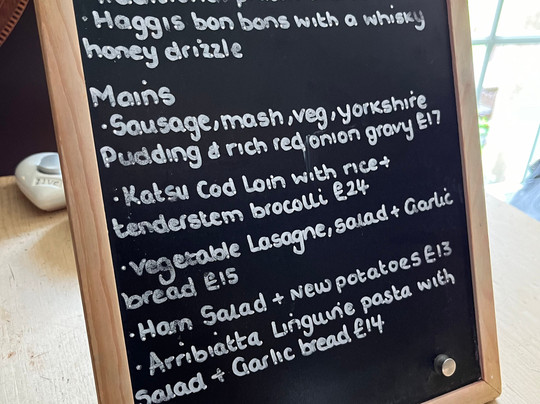 · Haggis bon bons with a whisky
honey drizzle
Mains
· Sausage, mash, veg, yorkshire
Pudding & rich red onion gravy £17
· Katsu Cod Loin with rice +
tenderstem brocolli £24
· Vegetable Lasagne, salad + Garlic
bread £15
· Ham Salad + New potatoes £13
· Arribiatta Linguine pasta with
Salad + Garlic bread £14